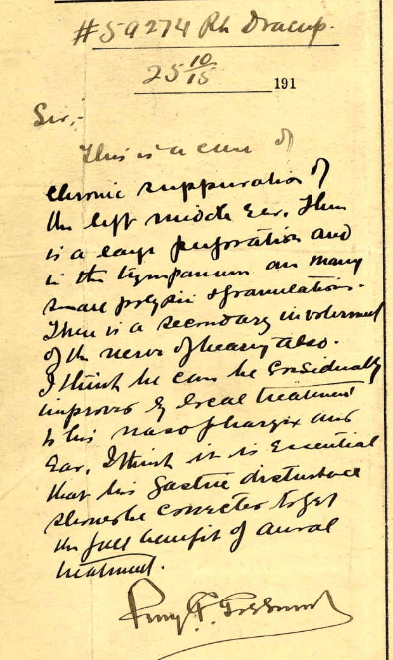 #59274 Rh Dracup.
25 10/15 191
Sir,-
This is a case of
chronic suppuration of
the left middle ear. There
is a large perforation and
in the tympanum are many
small polypii & granulations.
There is a secondary involvement
of the nerve of hearing also.
I think he can be considerably
improved by local treatment
to his naso pharynx and
Ear. I think it is essential
that his gastric disturbance
should be corrected to get
the full benefit of aural
treatment.